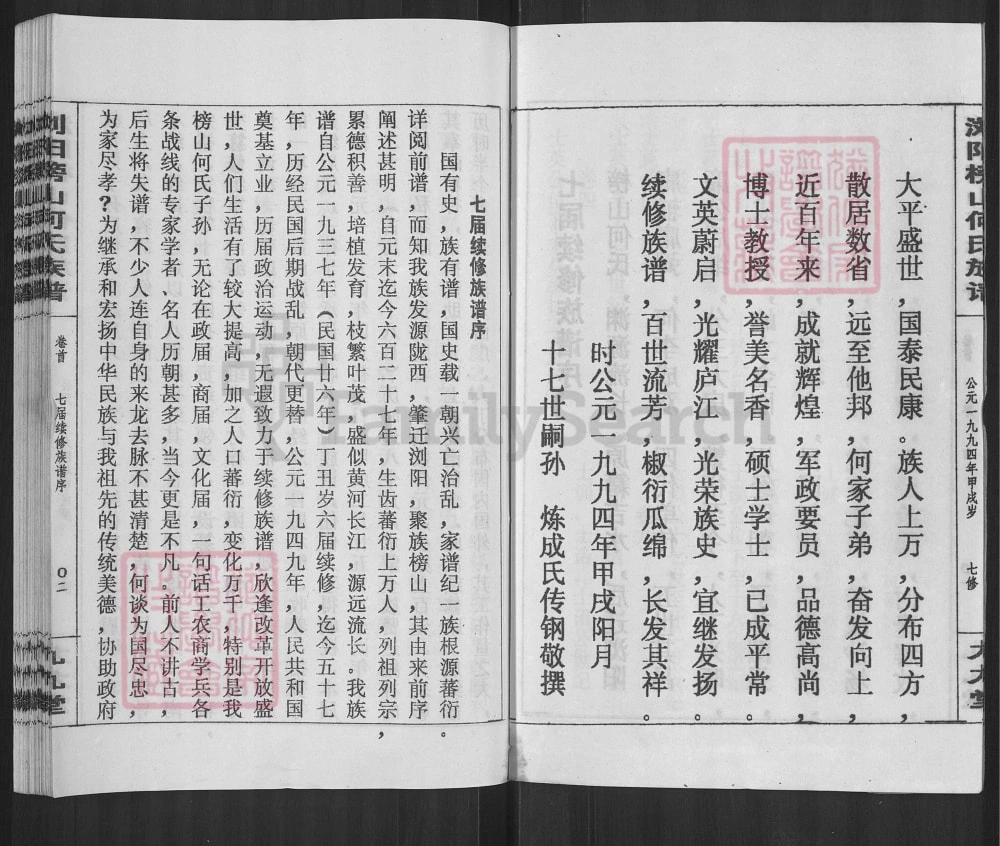 浏阳榜山何氏族谱
公元一九九四年甲戌岁
七修
大平盛世，国泰民康。族人上万，分布四方，
散居数省，远至他邦，何家子弟，奋发向上，
近百年来，成就辉煌，军政要员，品德高尚，
博士教授，誉美名香，硕士学士，已成平常。
文英蔚启，光耀庐江，光荣族史，宜继发扬。
续修族谱，百世流芳，椒衍瓜绵，长发其祥。
时公元一九九四年甲戌阳月
十七世嗣孙 炼成氏传钢敬撰
七届续修族谱序
国有史，族有谱，国史载一朝兴亡治乱，家谱纪一族根源蕃衍。
详阅前谱，而知我族发源陇西，肇迁浏阳，聚族榜山，其由来前序
阐述甚明，自元末迄今六百二十七年，生齿蕃衍上万人，列祖列宗，
累德积善，培植发育，枝繁叶茂，盛似黄河长江，源远流长。我族
谱自公元一九三七年（民国廿六年）丁丑岁六届续修，迄今五十七
年，历经民国后期战乱，朝代更替，公元一九四九年，人民共和国
奠基立业，历届政治运动，无遐致力于续修族谱，欣逢改革开放盛
世，人们生活有了较大提高，加之人口蕃衍，变化万千，特别是我
榜山何氏子孙，无论在政届，商届，文化届，一句话工农商学兵各
条战线的专家学者、名人历朝甚多，当今更是不凡。前人不讲古，
后生将失谱，不少人连自身的来龙去脉不甚清楚，何谈为国尽忠，
为家尽孝？为继承和宏扬中华民族与我祖先的传统美德，协助政府
浏阳榜山何氏族谱
卷首
七届续修族谱序
〇二
九九堂
FamilySearch